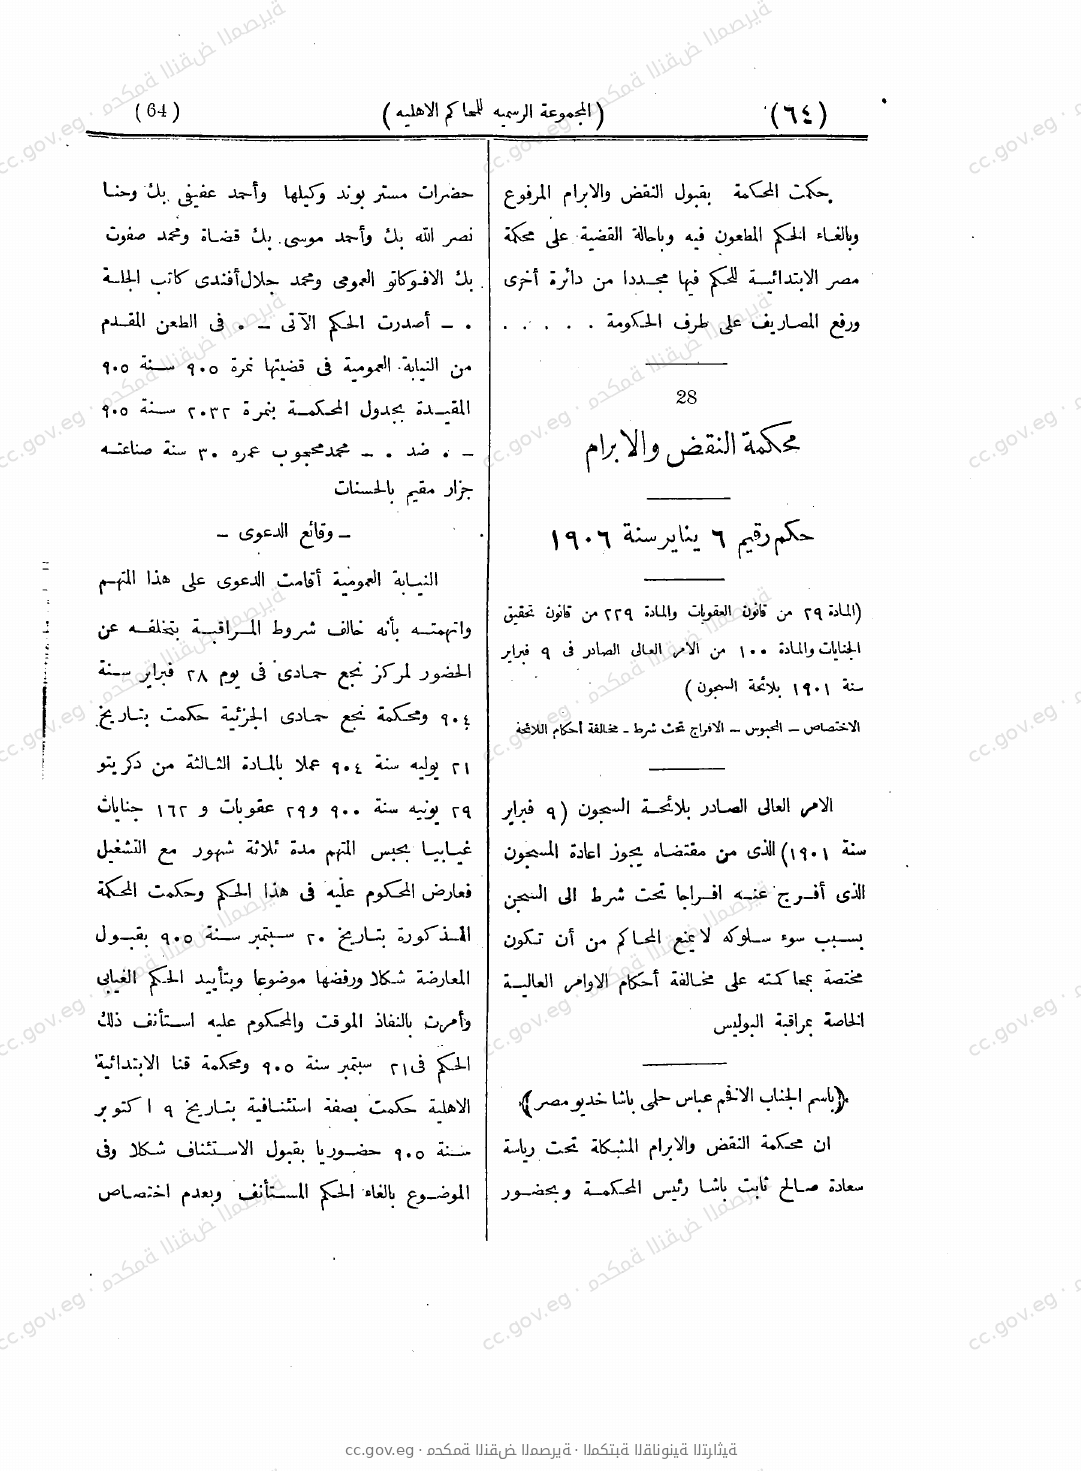 (٦٤) (المجموعة الرسميه للمحاكم الاهليه) (64)
حكمت المحكمة بقبول النقض والابرام المرفوع
وبالغاء الحكم المطعون فيه وباحالة القضية على محكمة
مصر الابتدائية للحكم فيها مجددا من دائرة أخرى
ورفع المصاريف على طرف الحكومة . . . . .
28
محكمة النقض والابرام
حكم رقيم ٦ يناير سنة ١٩٠٦
(المادة ٢٩ من قانون العقوبات والمادة ٢٢٩ من قانون تحقيق
الجنايات والمادة ١٠٠ من الامر العالى الصادر فى ٩ فبراير
سنة ١٩٠١ بلائحة السجون)
الاختصاص – المحبوس – الافراج تحت شرط - مخالفة أحكام اللائحة
الامر العالى الصادر بلائحة السجون (٩ فبراير
سنة ١٩٠١) الذى من مقتضاه يجوز اعادة المسجون
الذى أفرج عنه افراجا تحت شرط الى السجن
بسبب سوء سلوكه لا يمنع المحاكم من أن تكون
مختصة بمحاكمته على مخالفة أحكام الاوامر العالية
الخاصة بمراقبة البوليس
(باسم الجناب الافخم عباس حلمى باشا خديو مصر)
ان محكمة النقض والابرام المشكلة تحت رياسة
سعادة صالح ثابت باشا رئيس المحكمة وبحضور
حضرات مستر بوند وكيلها وأحمد عفيفى بك وحنا
نصر الله بك وأحمد موسى بك قضاة ومحمد صفوت
بك الافوكاتو العمومى ومحمد جلال أفندى كاتب الجلسة
. – أصدرت الحكم الآتى – . فى الطعن المقدم
من النيابة العمومية فى قضيتها نمرة ٩٠٥ سنة ٩٠٥
المقيدة بجدول المحكمة بنمرة ٢٠٣٢ سنة ٩٠٥
– . ضد . – محمد محجوب عمره ٣٠ سنة صناعته
جزار مقيم بالحسنات
– وقائع الدعوى –
النيابة العمومية أقامت الدعوى على هذا المتهم
واتهمته بأنه خالف شروط المراقبة بتخلفه عن
الحضور لمركز نجع حمادى فى يوم ٢٨ فبراير سنة
٩٠٤ ومحكمة نجع حمادى الجزئية حكمت بتاريخ
٢١ يوليه سنة ٩٠٤ عملا بالمادة الثالثة من دكريتو
٢٩ يونيه سنة ٩٠٠ و٢٩ عقوبات و ١٦٢ جنايات
غيابيا بحبس المتهم مدة ثلاثة شهور مع التشغيل
فعارض المحكوم عليه فى هذا الحكم وحكمت المحكمة
المذكورة بتاريخ ٢٠ سبتمبر سنة ٩٠٥ بقبول
المعارضة شكلا ورفضها موضوعا وبتأييد الحكم الغيابى
وأمرت بالنفاذ الموقت والمحكوم عليه استأنف ذلك
الحكم فى ٢١ سبتمبر سنة ٩٠٥ ومحكمة قنا الابتدائية
الاهلية حكمت بصفة استئنافية بتاريخ ٩ اكتوبر
سنة ٩٠٥ حضوريا بقبول الاستئناف شكلا وفى
الموضوع بالغاء الحكم المستأنف وبعدم اختصاص
cc.gov.eg · محكمة النقض المصرية · المكتبة القانونية التراثية